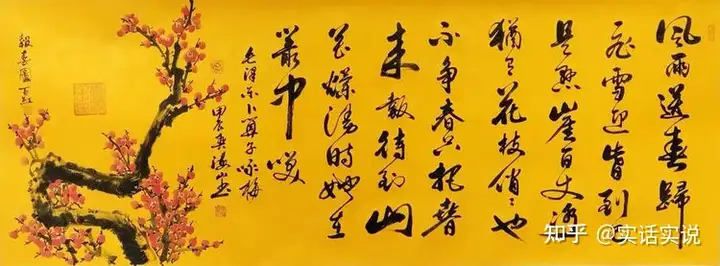 風雨送春歸
飛雪迎春到已
是懸崖百丈冰
猶有花枝俏〻也
不争春只把春
来報待到山
花爛漫時她在
叢中笑
毛澤东卜算子咏梅
甲辰海山
報春圖
知乎 @实话实说